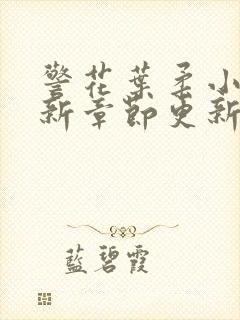 警花葉柔小
新章節更新
藍碧霞